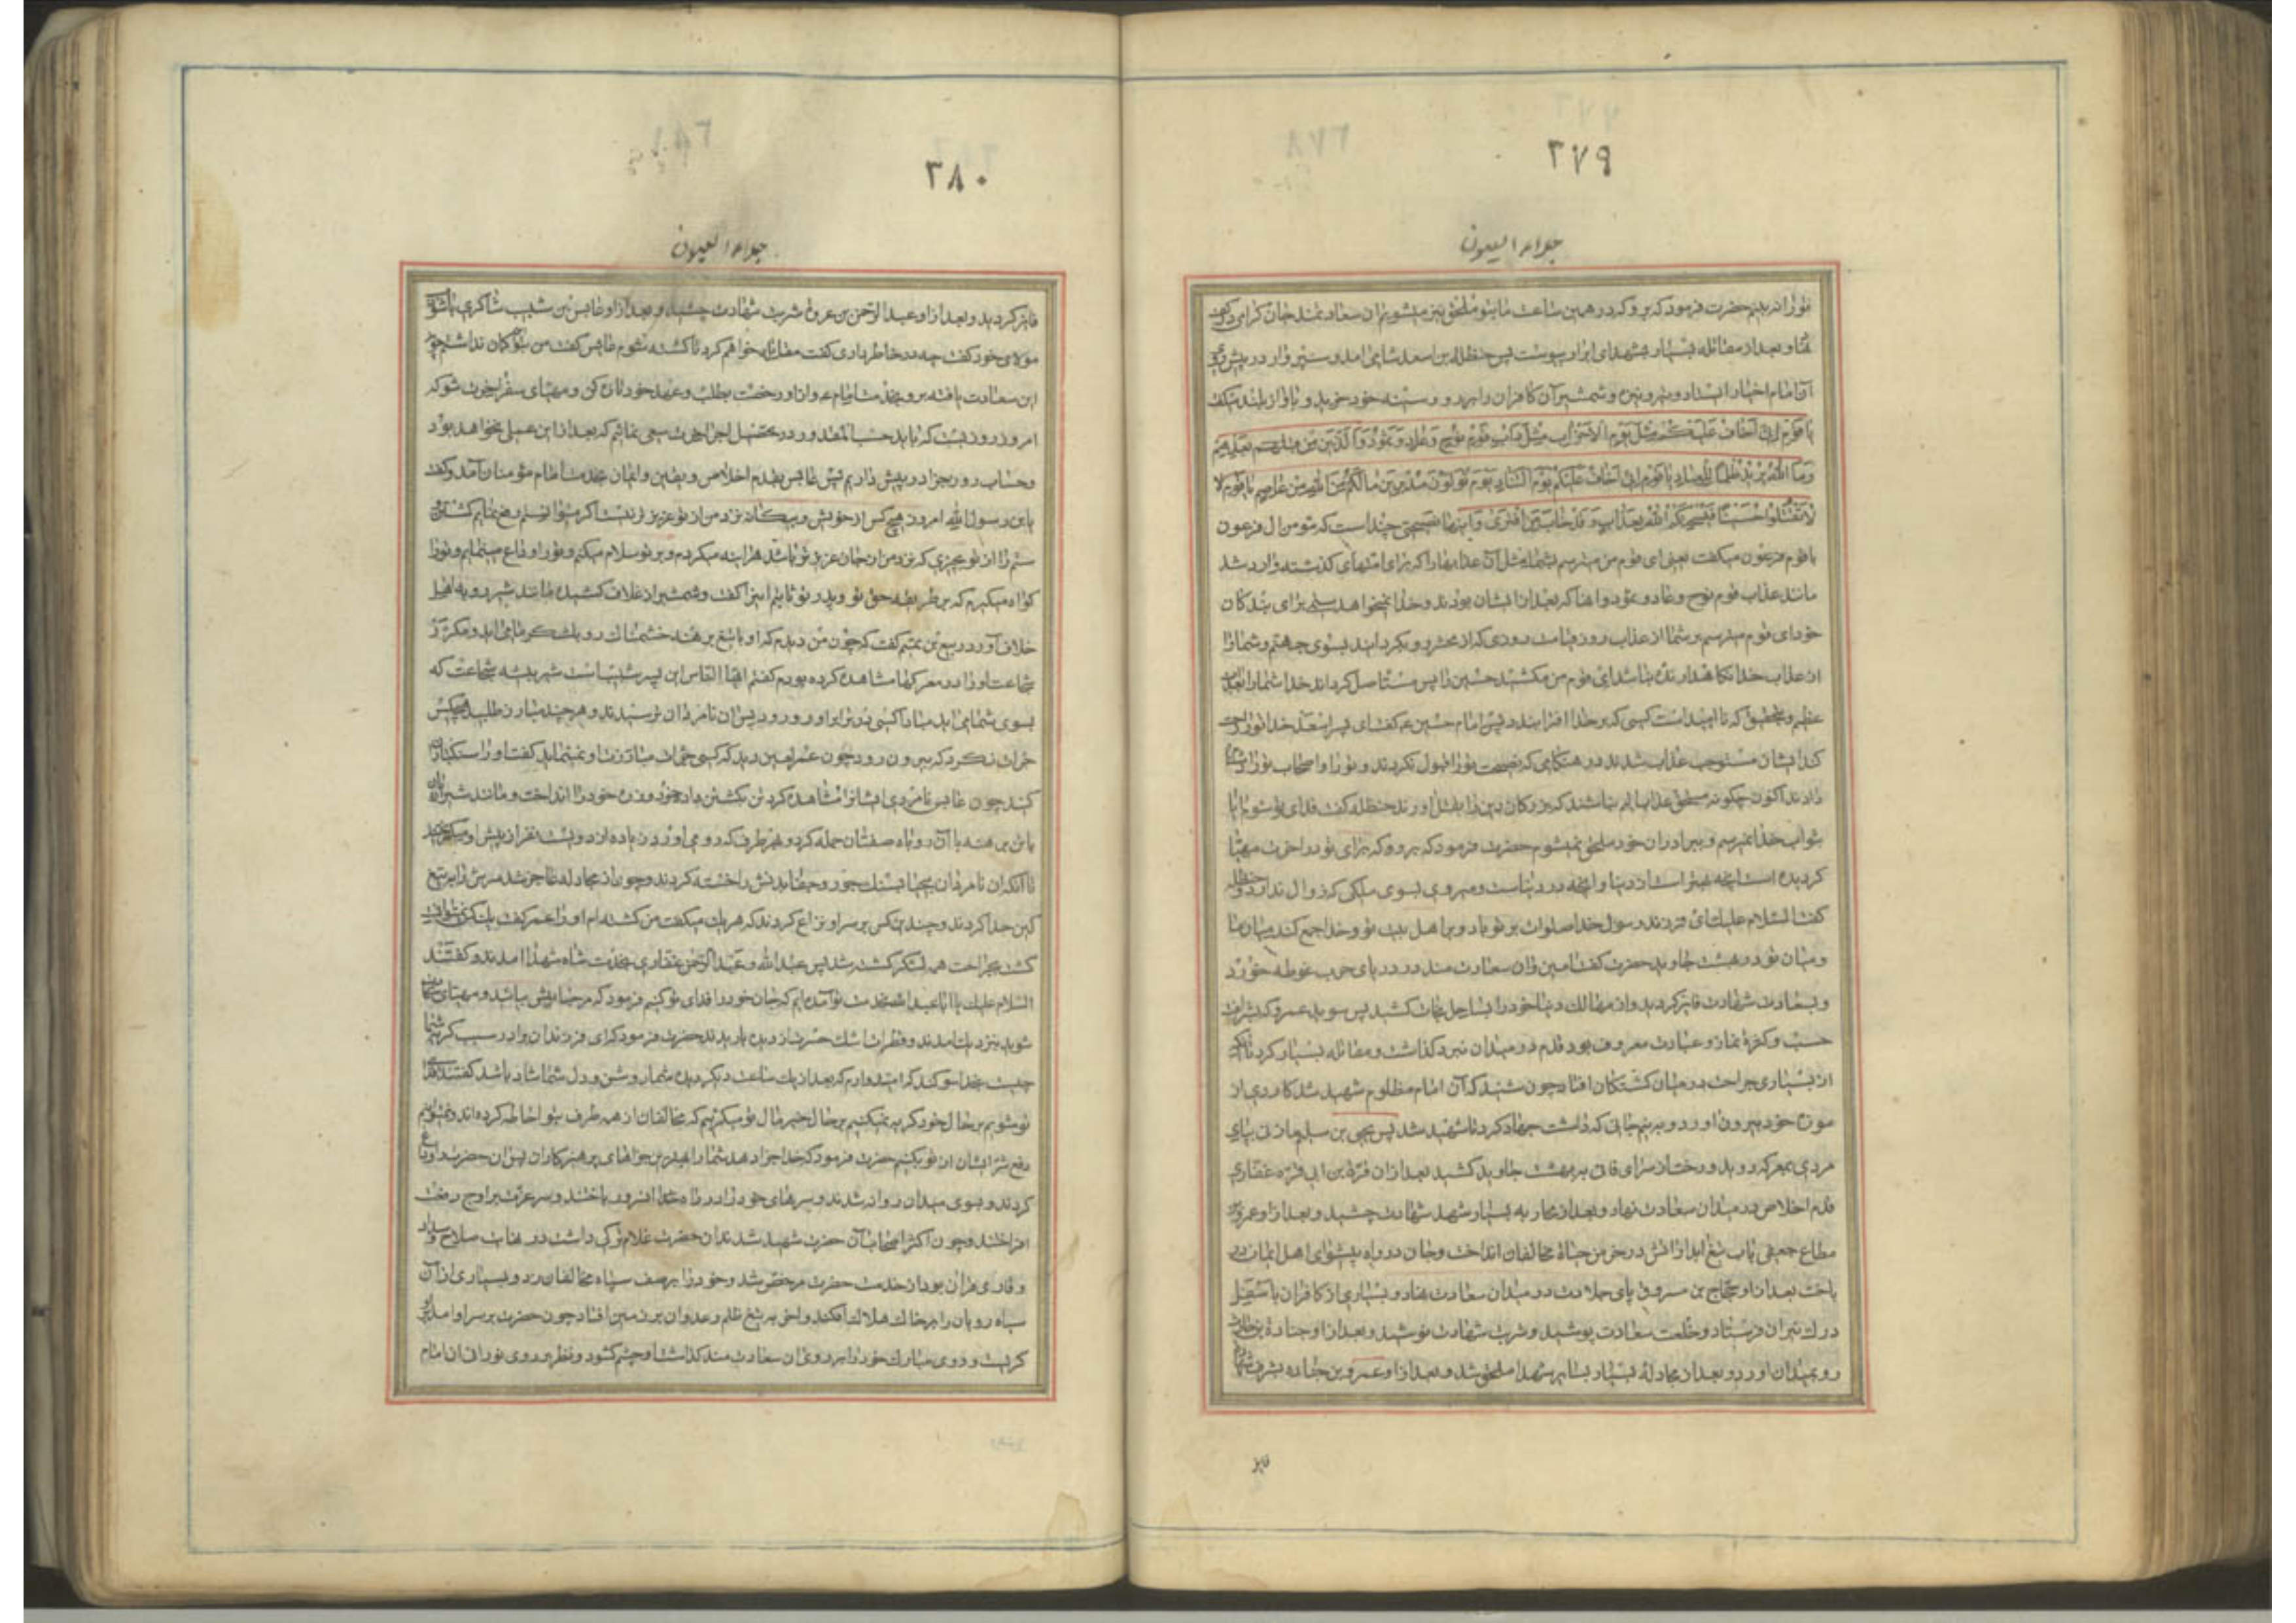 ۳۷۹
جلاء العیون
تو را ندیدیم حضرت فرمود که برو که در همین ساعت ما بتو ملحق نیز میشویم ان سعادتمند جان کرامی در کف
و بعد از مقاتله بسیار بشهدای ابرار پیوست پس حنظلة بن اسعد شامی امد و سپروار در پیش روی
ان امام اخیار ایستاد و تیر و نیزه و شمشیر آن کافران را برو و سینه خود خرید و باواز بلند میکفت
یا قوم انی اخاف علیکم مثل یوم الاحزاب مثل داب قوم نوح و عاد و ثمود و الذین من بعدهم
و ما الله یرید ظلما للعباد یا قوم انی اخاف علیکم یوم التناد یوم تولون مدبرین ما لکم من الله من عاصم یا قوم لا
لا تقتلوا حسینا فیسحتکم الله بعذاب و قد خاب من افتری و اینها نصیحتی چند است که مومن ال فرعون
با قوم فرعون میکفت یعنی ای قوم من میترسم بشما مثل آن عذابها را که برای امتهای کذشته وارد شد
مانند عذاب قوم نوح و عاد و ثمود و انها که بعد از ایشان بودند و خدا نمیخواهد ستمی برای بندکان
خود ای قوم میترسم بر شما از عذاب روز قیامت روزی که از محشر رو بکردانند بسوی جهنم و شما را
از عذاب خدا نکاهدارنده نباشد ای قوم من مکشید حسین را پس مستاصل کرداند خدا شما را بعذاب
عظیم و بتحقیق که ناامید است کسی که بر خدا افترا بندد پس امام حسین ع کفت ای پسر اسعد خدا تو را رحمت
کند ایشان مستوجب عذاب شدند در هنکامی که نصیحت تو را قبول نکردند و تو را و اصحاب تو را دشنام
دادند اکنون چکونه مستحق عذاب الهی نباشند که بزرکان دین را بقتل اورند حنظله کفت فدای تو شوم ایا
بثواب خدا نمیرسم و ببرادران خود ملحق نمیشوم حضرت فرمود که برو که برای تو در اخرت مهیا
کردیده است انچه بهتر است از دنیا و انچه در دنیاست و میروی بسوی ملکی که زوال ندارد حنظله
کفت السلام علیک ای فرزند رسول خدا صلوات بر تو باد و بر اهل بیت تو و خدا جمع کند میان ما
و میان تو در بهشت جاوید حضرت کفت امین و ان سعادت مند در دریای حرب غوطه خورد
و بسعادت شهادت فایز کردید و از مهالک دنیا خود را بساحل نجات کشید پس سوید بن عمرو که بشرافت
حسب و کثرة نماز و عبادت معروف بود قدم در میدان نبرد کذاشت و مقاتله بسیار کرد تا انکه
از بسیاری جراحت در میان کشتکان افتاد چون شنید که آن امام مظلوم شهید شد کاردی از
موزه خود بیرون اورد و به نیم جانی که داشت جهاد کرد تا شهید شد پس یحیی بن سلیم مازنی بپای
مردی بمعرکه دوید و رخت از سرای فانی به بهشت جاوید کشید بعد از ان قرة بن ابی قره غفاری
قدم اخلاص در میدان سعادت نهاد و بعد از محاربه بسیار شهد شهادت چشید و بعد از او عمرو بن
مطاع جعفی باب تیغ ابدار اتش در خرمن حیاة مخالفان انداخت و جان در راه پیشوای اهل ایمان در
باخت بعد از او حجاج بن مسروق پای جلادت در میدان سعادت نهاد و بسیاری از کافران باسفل
درک نیران فرستاد و خلعت سعادت پوشید و شربت شهادت نوشید و بعد از او جنادة بن حارث
رو بمیدان اورد و بعد از مجادلة بسیار بسایر شهدا ملحق شد و بعد از او عمرو بن جناده بشرف شهادة
فایز
۳۸۰
جلاء العیون
فایز کردید و بعد از او عبد الرحمن بن عروة شربت شهادت چشید و بعد از او عابس بن شبیب شاکری با شوذب
مولای خود کفت چه در خاطر داری کفت مقاتله خواهم کرد تا کشته شوم عابس کفت من بتو همین کمان نداشتم چون
این سعادت یافته برو بخدمت امام ع و از او رخصت بطلب و عهد خود تازه کن و مهیای سفر اخرت شو که
امروز روزیست که باید حسب المقدور در تحصیل اجر اخرت سعی نمائیم که بعد از این عملی نخواهد بود
و حساب روز جزا در پیش داریم پس عابس بقدم اخلاص و یقین و ایمان بخدمت امام مؤمنان آمد و کفت
یا بن رسول الله امروز هیچ کس از خویش و بیکانه نزد من از تو عزیز تر نیست اکر میتوانستم دفع نمایم کشتن
ستم را از تو بچیزی که نزد من از جان عزیز تر باشد هراینه میکردم و بر تو سلام میکنم و تو را وداع مینمایم و تو را
کواه میکیرم که بر طریقه حق تو و پدر تو ثابتم اینرا کفت و شمشیر از غلاف کشیده مانند شیر رو به اهل
خلاف آورد ربیع بن تمیم کفت که چون من دیدم که او با تیغ برهنه خشمناک رو بلشکر ما می اید و مکرر
شجاعت او را در معرکها مشاهده کرده بودم کفتم ایها الناس این پسر شبیب است شیر بیشه شجاعت که
بسوی شما می اید مبادا کسی در برابر او رود پس ان نامردان ترسیدند و هر چند مبارز طلبید هیچکس
جرات نکرد که بیرون رود چون عمر لعین دید که کسی جرات مبارزت او نمینماید کفت او را سنکباران
کنید چون عابس نامردی ایشان را مشاهده کرد تن بکشتن داد و خود و زره خود را انداخت و مانند شیر ژیان
با تن برهنه با آن روباه صفتان حمله کرد و بهر طرف که رو می اورد زیاده از دویست نفر از پیش او میکریختند
تا آنکه ان نامردان بیحیا بسنک جور و جفا بدنش را خسته کردند و چون از مجادله عاجز شد سرش را بتیغ
کین جدا کردند و چندین کس بر سر او نزاع کردند که هر یک میکفت من کشته ام او را عمر کفت یک کس نمیتوانست
کشت بجراحت همه لشکر کشته شد پس عبد الله و عبد الرحمن غفاری بخدمت شاه شهدا امدند و کفتند
السلام علیک یا ابا عبد الله بخدمت تو آمده ایم که جان خود را فدای تو کنیم فرمود که مرحبا پیش بیائید و مهیای شهادت
شوید نزدیک امدند و قطرات اشک حسرت از دیده باریدند حضرت فرمود که ای فرزندان برادر سبب کریه شما
چیست بخدا سوکند که امیدوارم که بعد از یک ساعت دیکر دیده شما روشن و دل شما شاد باشد کفتند فدای
تو شویم بر حال خود کریه نمیکنیم بر حال خیر مال تو میکرییم که مخالفان از همه طرف بتو احاطه کرده اند و نمیتوانیم
دفع شر ایشان از تو بکنیم حضرت فرمود که خدا جزا دهد شما را بهترین جزاهای پرهیزکاران پس ان حضرت را وداع
کردند و بسوی میدان روان شدند و سرهای خود را در راه خدا در باختند و سر عزت بر اوج رفعت
افراختند و چون اکثر اصحاب آن حضرت شهید شدند ان حضرت غلام ترکی داشت در نهایت صلاح و سداد
و قاری قران بود از خدمت حضرت مرخص شد و خود را بر صف سپاه مخالفان زد و بسیاری از آن
سیاه رویان را بر خاک هلاک افکند و اخر به تیغ ظلم و عدوان بر زمین افتاد چون حضرت بر سر او امد بر او
کریست و روی مبارک خود را بر روی ان سعادت مند کذاشت او چشم کشود و نظر بر روی نورانی ان امام